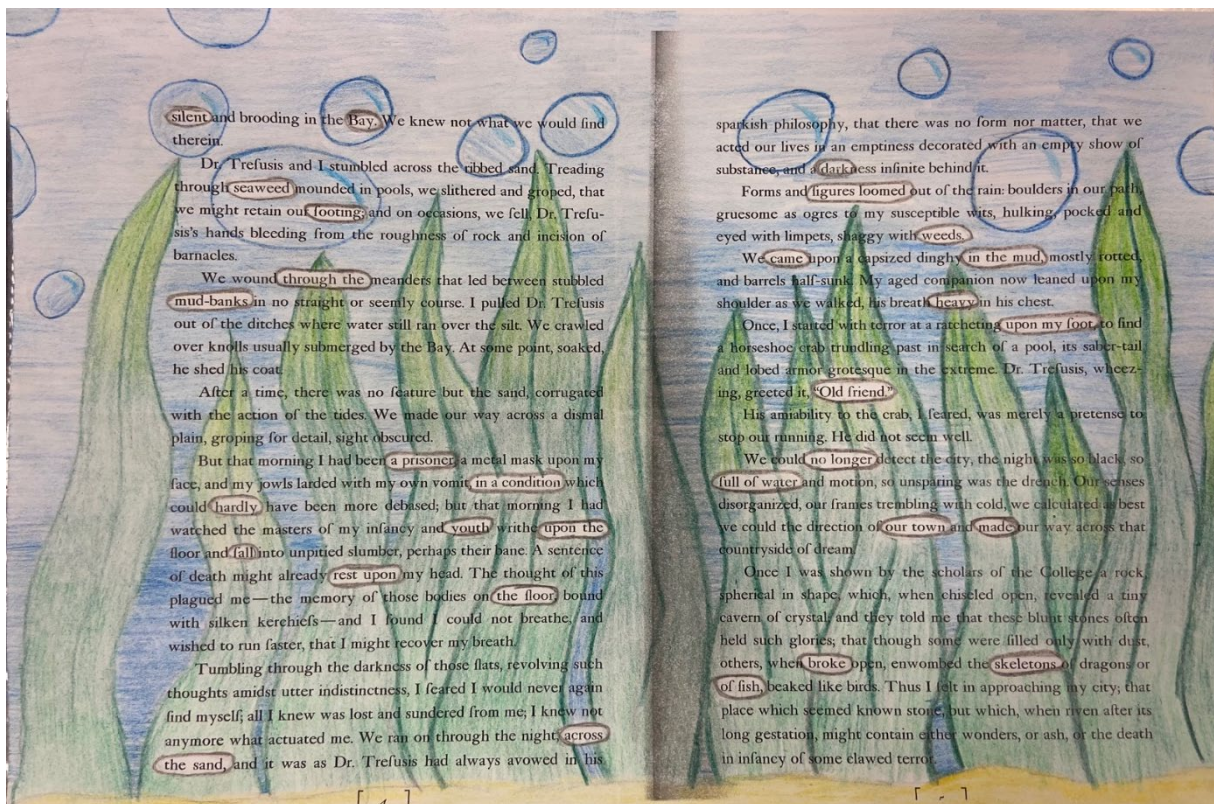 silent and brooding in the Bay. We knew not what we would find
therein.
Dr. Trefusis and I stumbled across the ribbed sand. Treading
through seaweed mounded in pools, we slithered and groped, that
we might retain our footing; and on occasions, we fell, Dr. Trefu-
sis's hands bleeding from the roughness of rock and incision of
barnacles.
We wound through the meanders that led between stubbled
mud-banks in no straight or seemly course. I pulled Dr. Trefusis
out of the ditches where water still ran over the silt. We crawled
over knolls usually submerged by the Bay. At some point, soaked,
he shed his coat.
After a time, there was no feature but the sand, corrugated
with the action of the tides. We made our way across a dismal
plain, groping for detail, sight obscured.
But that morning I had been a prisoner, a metal mask upon my
face, and my jowls larded with my own vomit, in a condition which
could hardly have been more debased; but that morning I had
watched the masters of my infancy and youth writhe upon the
floor and fall into unpitied slumber, perhaps their bane. A sentence
of death might already rest upon my head. The thought of this
plagued me—the memory of those bodies on the floor, bound
with silken kerchiefs—and I found I could not breathe, and
wished to run faster, that I might recover my breath.
Tumbling through the darkness of those flats, revolving such
thoughts amidst utter indistinctness, I feared I would never again
find myself; all I knew was lost and sundered from me; I knew not
anymore what actuated me. We ran on through the night, across
the sand, and it was as Dr. Trefusis had always avowed in his
sparkish philosophy, that there was no form nor matter, that we
acted our lives in an emptiness decorated with an empty show of
substance, and a darkness infinite behind it.
Forms and figures loomed out of the rain: boulders in our path,
gruesome as ogres to my susceptible wits, hulking, pocked and
eyed with limpets, shaggy with weeds.
We came upon a capsized dinghy in the mud, mostly rotted,
and barrels half-sunk. My aged companion now leaned upon my
shoulder as we walked, his breath heavy in his chest.
Once, I started with terror at a ratcheting upon my foot, to find
a horseshoe crab trundling past in search of a pool, its saber-tail
and lobed armor grotesque in the extreme. Dr. Trefusis, wheez-
ing, greeted it, "Old friend."
His amiability to the crab, I feared, was merely a pretense to
stop our running. He did not seem well.
We could no longer detect the city, the night was so black, so
full of water and motion, so unsparing was the drench. Our senses
disorganized, our frames trembling with cold, we calculated as best
we could the direction of our town and made our way across that
countryside of dream.
Once I was shown by the scholars of the College a rock,
spherical in shape, which, when chiseled open, revealed a tiny
cavern of crystal; and they told me that these blunt stones often
held such glories; that though some were filled only with dust,
others, when broke open, enwombed the skeletons of dragons or
of fish, beaked like birds. Thus I felt in approaching my city; that
place which seemed known stone, but which, when riven after its
long gestation, might contain either wonders, or ash, or the death
in infancy of some clawed terror.